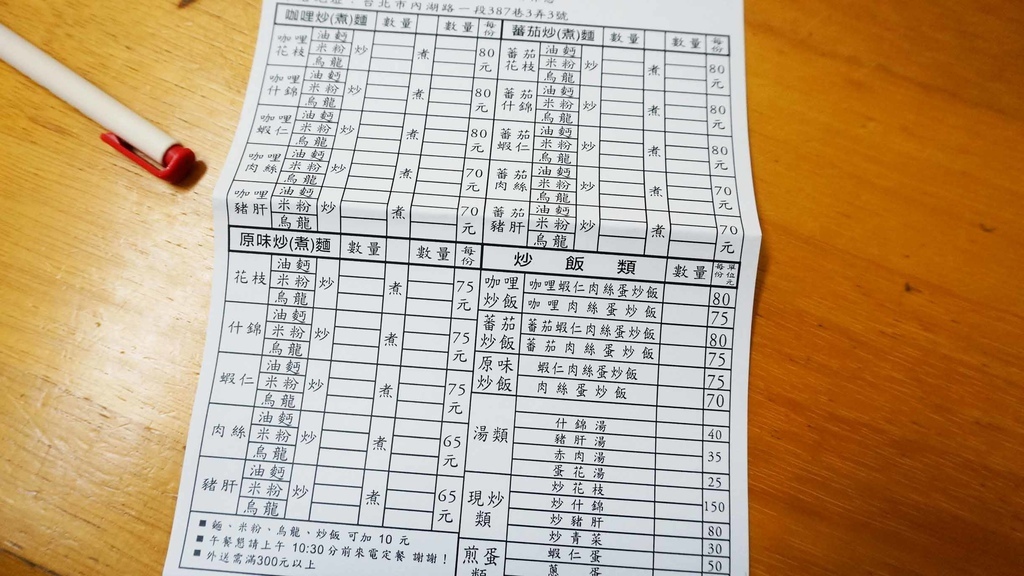 台北市內湖路一段387巷3弄3號
咖哩炒(煮)麵 數量 數量 每份
咖哩花枝 油麵 米粉 烏龍 炒 煮 80元
咖哩什錦 油麵 米粉 烏龍 炒 煮 80元
咖哩蝦仁 油麵 米粉 烏龍 炒 煮 80元
咖哩肉絲 油麵 米粉 烏龍 炒 煮 70元
咖哩豬肝 油麵 米粉 烏龍 炒 煮 70元
蕃茄炒(煮)麵 數量 數量 每份
蕃茄花枝 油麵 米粉 烏龍 炒 煮 80元
蕃茄什錦 油麵 米粉 烏龍 炒 煮 80元
蕃茄蝦仁 油麵 米粉 烏龍 炒 煮 80元
蕃茄肉絲 油麵 米粉 烏龍 炒 煮 70元
蕃茄豬肝 油麵 米粉 烏龍 炒 煮 70元
原味炒(煮)麵 數量 數量 每份
花枝 油麵 米粉 烏龍 炒 煮 75元
什錦 油麵 米粉 烏龍 炒 煮 75元
蝦仁 油麵 米粉 烏龍 炒 煮 75元
肉絲 油麵 米粉 烏龍 炒 煮 65元
豬肝 油麵 米粉 烏龍 炒 煮 65元
■ 麵、米粉、烏龍、炒飯 可加 10 元
■ 午餐懇請上午 10:30分前來電定餐 謝謝!
■ 外送需滿300元以上
炒飯類 數量 每份 單位元
咖哩炒飯 咖哩蝦仁肉絲蛋炒飯 80
咖哩肉絲蛋炒飯 75
蕃茄炒飯 蕃茄蝦仁肉絲蛋炒飯 80
蕃茄肉絲蛋炒飯 75
原味炒飯 蝦仁肉絲蛋炒飯 75
肉絲蛋炒飯 70
湯類
什錦湯 40
豬肝湯
赤肉湯 35
蛋花湯 25
現炒類 炒花枝
炒什錦 150
炒豬肝 80
炒青菜 30
煎蛋類 蝦仁蛋 50
蔥蛋